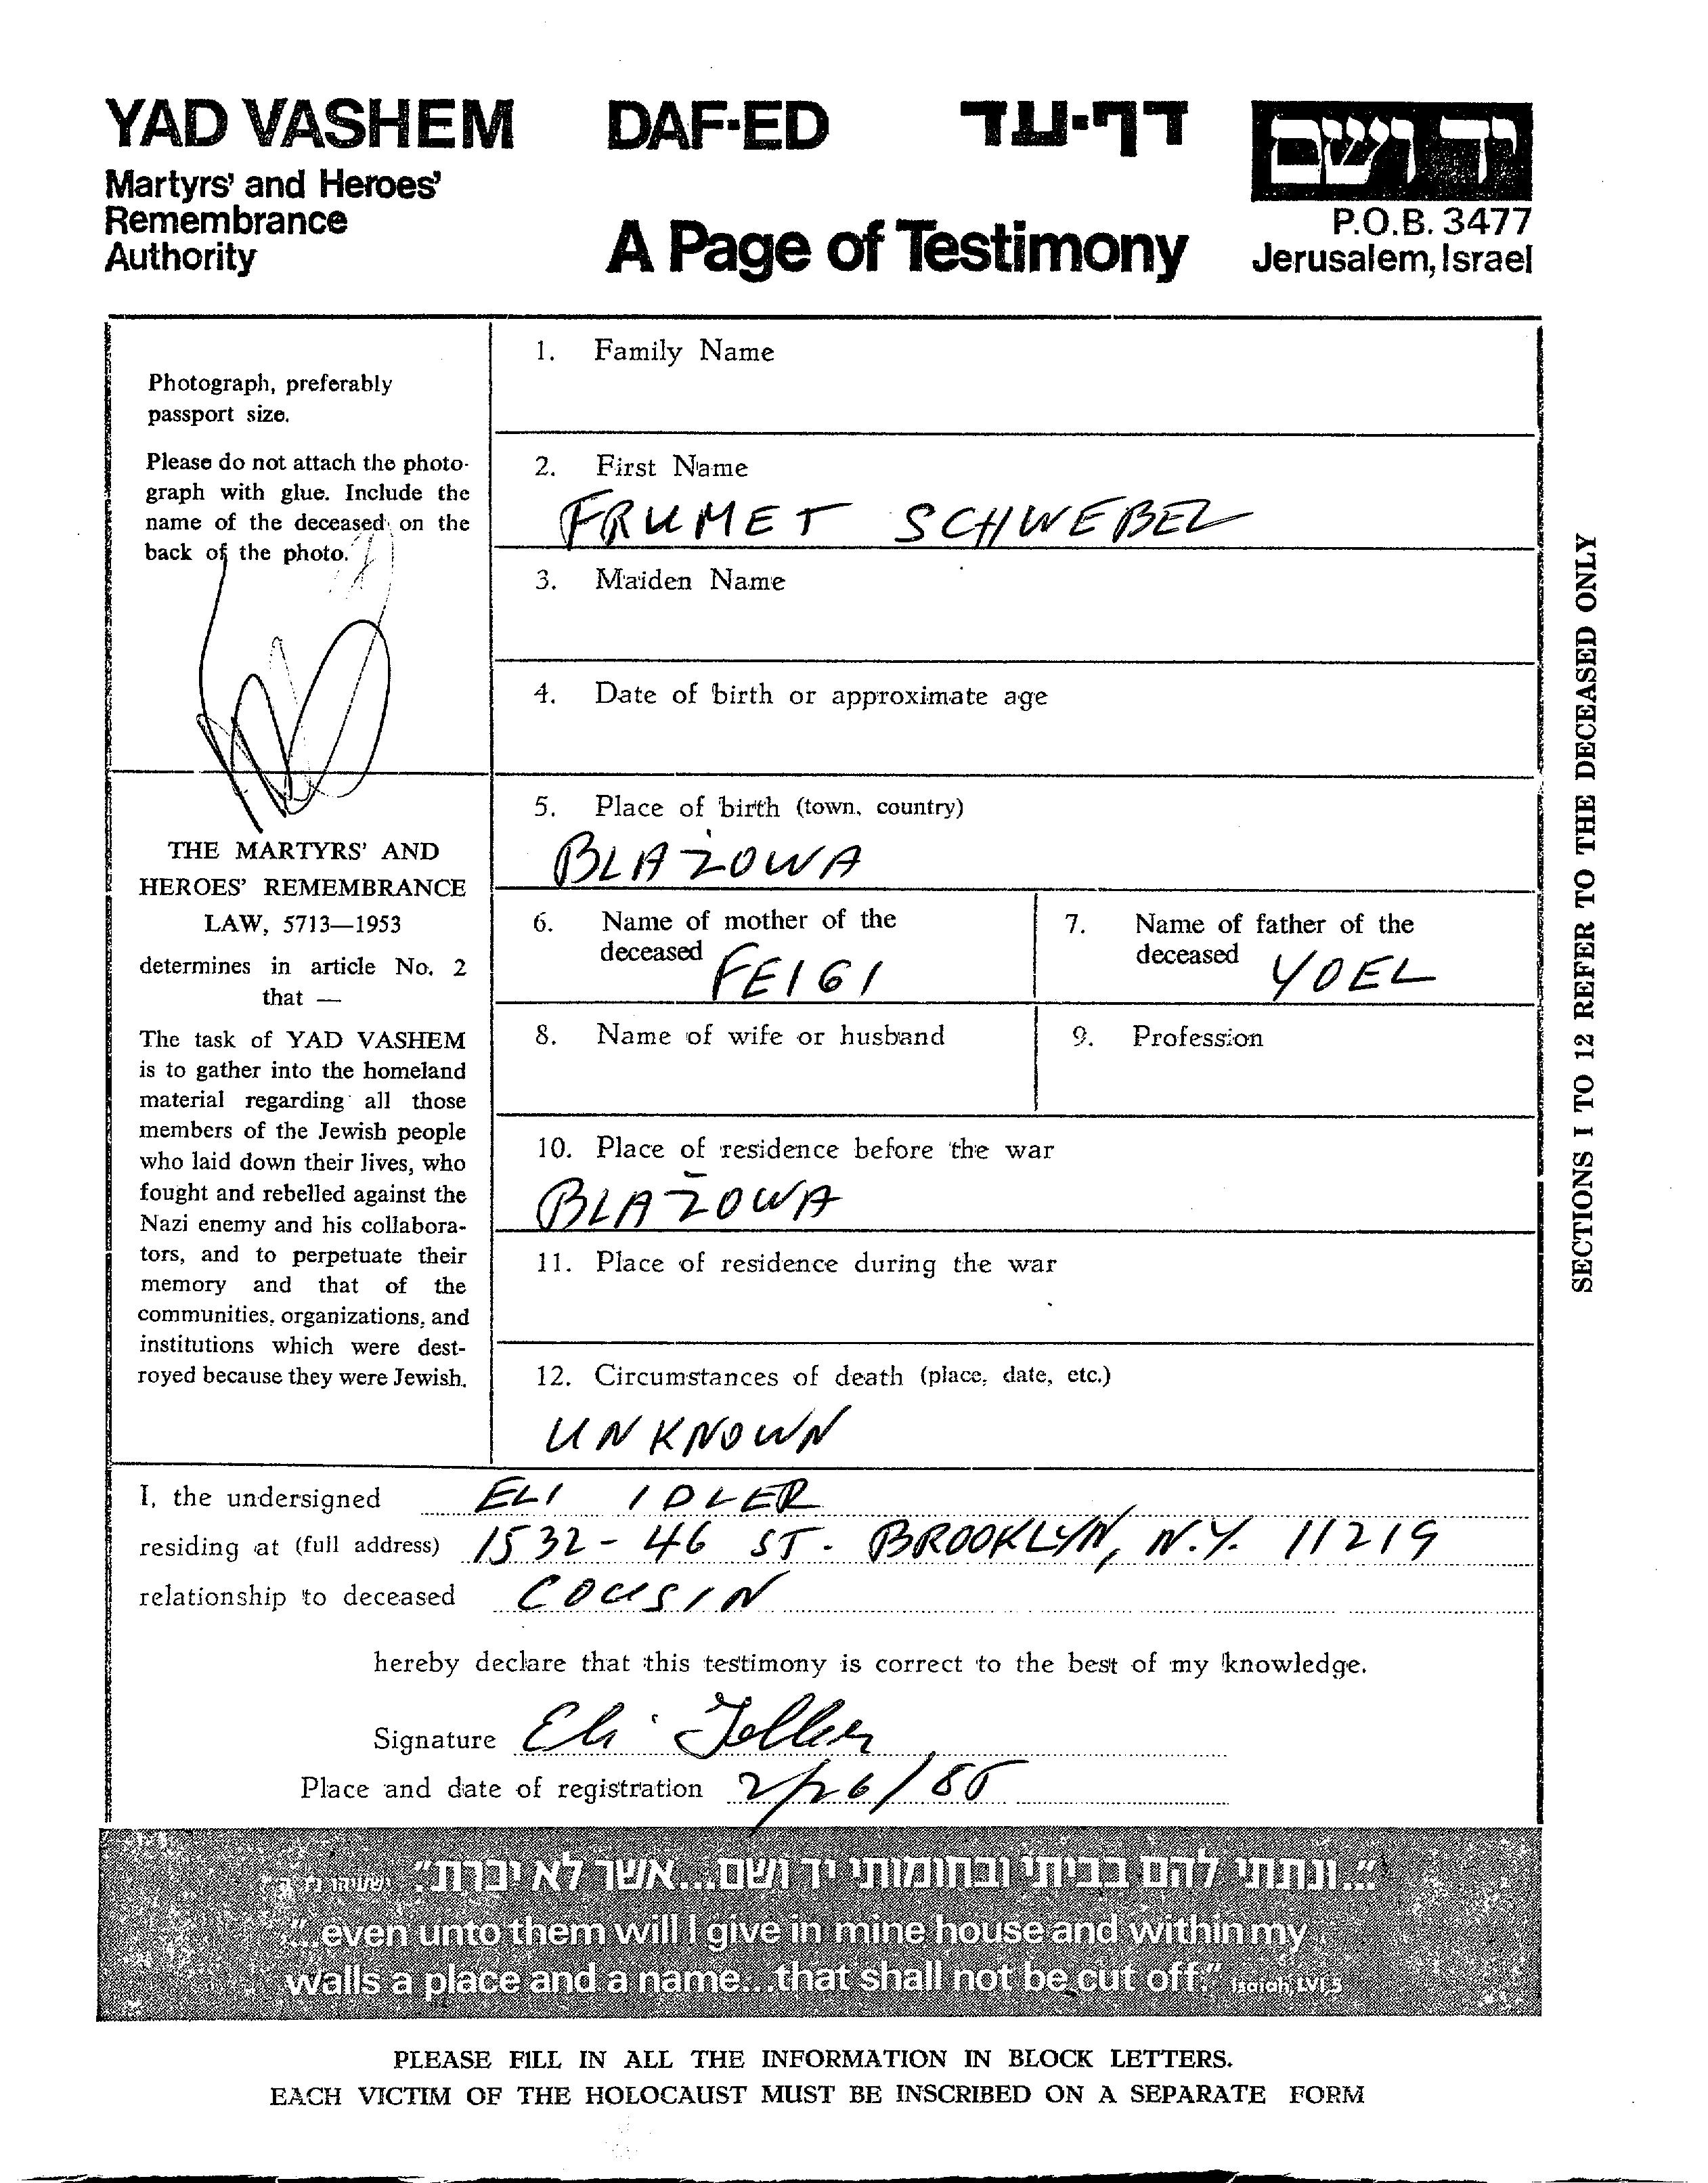 YAD VASHEM DAF-ED דף-עד יד ושם
Martyrs' and Heroes'
Remembrance
Authority
A Page of Testimony
P.O.B. 3477
Jerusalem, Israel
Photograph, preferably
passport size.
Please do not attach the photo-
graph with glue. Include the
name of the deceased on the
back of the photo.
THE MARTYRS' AND
HEROES' REMEMBRANCE
LAW, 5713—1953
determines in article No. 2
that —
The task of YAD VASHEM
is to gather into the homeland
material regarding all those
members of the Jewish people
who laid down their lives, who
fought and rebelled against the
Nazi enemy and his collabora-
tors, and to perpetuate their
memory and that of the
communities, organizations, and
institutions which were dest-
royed because they were Jewish.
1. Family Name
2. First Name
FRUMET SCHWEBEL
3. Maiden Name
4. Date of birth or approximate age
5. Place of birth (town, country)
BLAŻOWA
6. Name of mother of the
deceased FEIGI
7. Name of father of the
deceased YOEL
8. Name of wife or husband
9. Profession
10. Place of residence before the war
BLAŻOWA
11. Place of residence during the war
12. Circumstances of death (place, date, etc.)
UNKNOWN
SECTIONS I TO 12 REFER TO THE DECEASED ONLY
I, the undersigned ELI IDLER
residing at (full address) 1532-46 ST. BROOKLYN, N.Y. 11219
relationship to deceased COUSIN
hereby declare that this testimony is correct to the best of my knowledge.
Signature Eli
Place and date of registration 2/26/85
"...ונתתי להם בביתי ובחומותי יד ושם...אשר לא יכרת." ישעיהו נו, ה
"...even unto them will I give in mine house and within my
walls a place and a name...that shall not be cut off:" Isaiah, LVI, 5
PLEASE FILL IN ALL THE INFORMATION IN BLOCK LETTERS.
EACH VICTIM OF THE HOLOCAUST MUST BE INSCRIBED ON A SEPARATE FORM